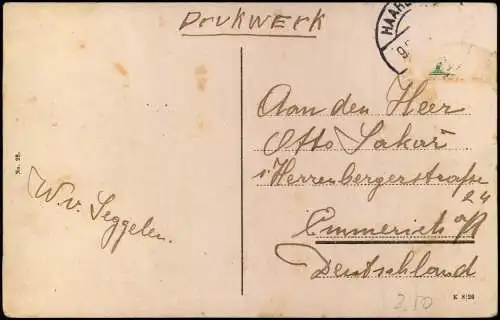 Drukwerk
HAARL
No. 28.
W. v. Seggelen.
Aan den Heer
Otto Sakar
Herrenbergerstraße
24
Emmerich a/R
Deutschland
K 8/26
2.50